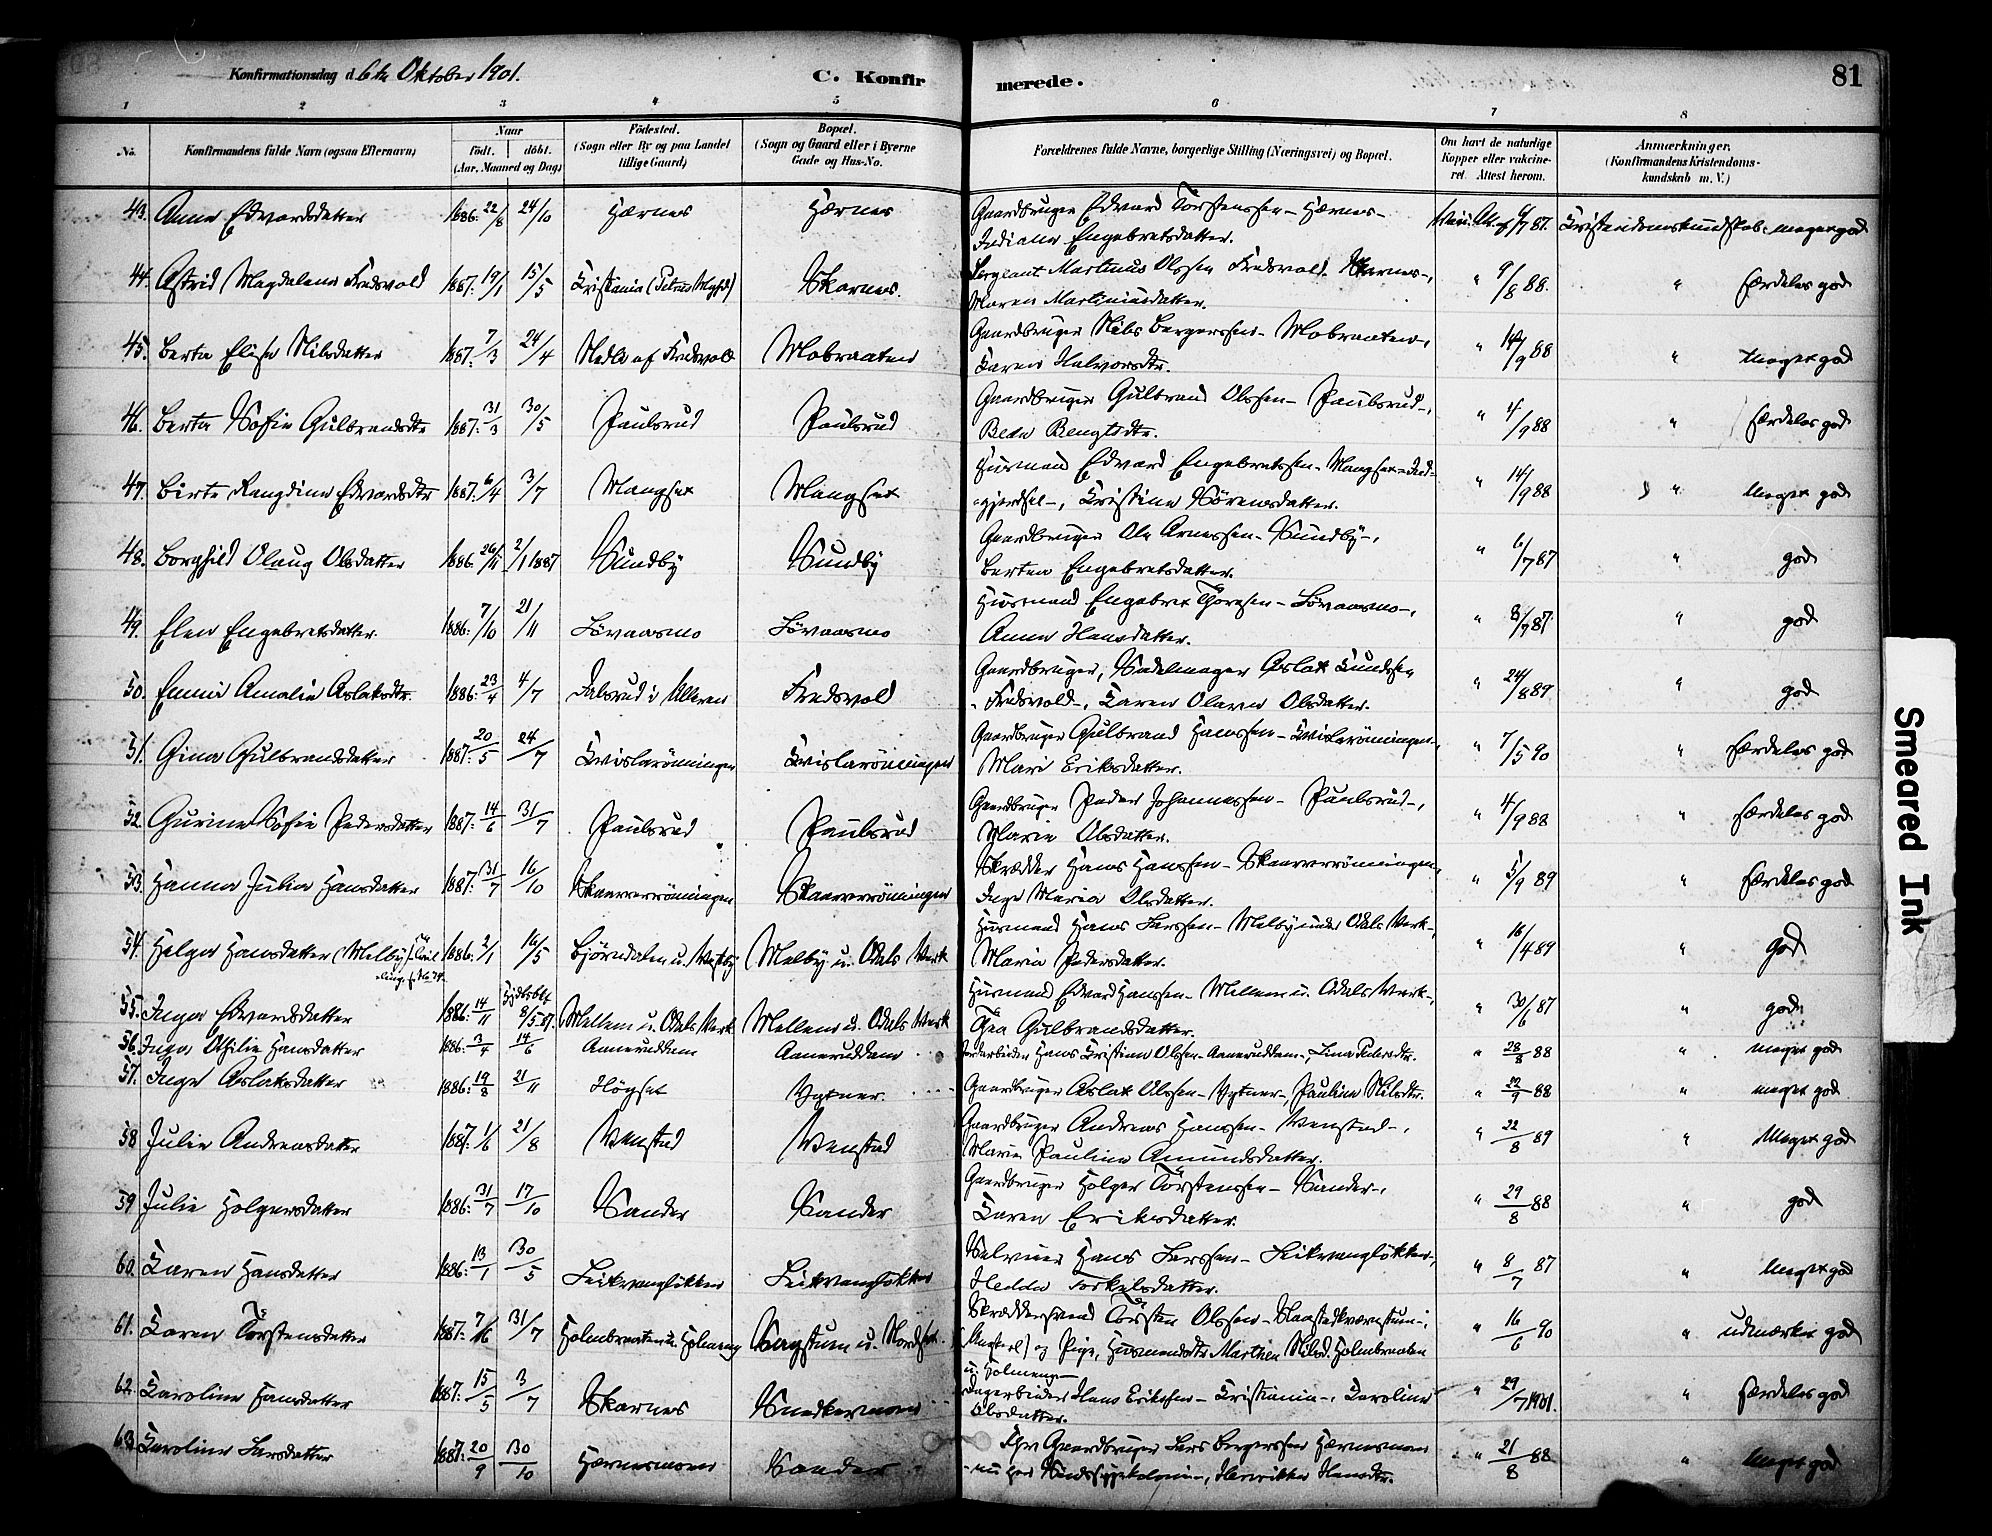 Konfirmationsdag d. 6te Oktober 1901.
C. Konfir
merede.
81
1 2 3 4 5 6 7 8
No.
Konfirmandens fulde Navn (ogsaa Efternavn)
Naar
födt. döbt.
(Aar, Maaned og Dag)
Födested.
(Sogn eller By og paa Landet
tillige Gaard)
Bopæl.
(Sogn og Gaard eller i Byerne
Gade og Hus-No.
Forældrenes fulde Navne, borgerlige Stilling (Næringsvei) og Bopæl.
Om havt de naturlige
Kopper eller vakcine-
ret. Attest herom.
Anmærkninger.
(Konfirmandens Kristendoms-
kundskab m. V.)
43. Anna Edvardsdatter 1886: 22/8 24/10 Hærnes Hærnes Gaardbruger Edvard Torstenssen - Hærnes -
Indiana Engebretsdatter. 87. Kristendomskundskab: meget god
44. Astrid Magdalena Fredsvold 1887: 19/1 15/5 Kristiania Skarnes. Sergeant Martinus Olssen Fredsvold - Skarnes -,
Maren Martiniusdatter. " 9/8 88. " særdeles god
45. Berta Elise Nilsdatter 1887: 7/3 24/4 Nedb. af Fredsvold Mobraaten Gaardbruger Nils Bergerssen - Mobraaten -,
Karen Halvorsdtr. " 88 " Meget god
46. Berta Sofie Gulbrandsdtr 1887: 31/3 30/5 Paulsrud Paulsrud Gaardbruger Gulbrand Olssen - Paulsrud -,
Beda Bengtsdtr. " 4/9 88 " særdeles god
47. Birte Ragndina Edvardsdtr 1887: 6/4 3/7 Mangset Mangset Husmand Edvard Engebretssen - Mangset -
Kristine Sörensdatter. " 14/9 88 " Meget god
48. Borghild Olaug Olsdatter 1886: 26/11 2/1 1887 Sundby Sundby Gaardbruger Ole Arnessen - Sundby -,
Berten Engebretsdatter. " 6/7 87 " god
49. Elen Engebretsdatter. 1886: 7/10 21/11 Lövaasmo Lövaasmo Husmand Engebret Thoresen - Lövaasmo -,
Anna Hansdatter. " 8/7 87 " god
50. Emma Amalie Aslaksdtr. 1886: 23/4 4/7 Julsrud i Ulleren Fredsvold Gaardbruger, Sadelmager Aslak Knudsen
- Fredsvold -, Karen Olava Olsdatter. " 24/8 89 " god
51. Gina Gulbrandsdatter 1887: 20/5 24/7 Kvislarönningen Kvislarönningen Gaardbruger Gulbrand Hanssen - Kvislarönningen -,
Mari Eriksdatter. " 7/5 90 " særdeles god
52. Gurine Sofie Pedersdatter 1887: 14/6 31/7 Paulsrud Paulsrud Gaardbruger Peder Johannessen - Paulsrud -,
Marie Olsdatter. " 4/9 88 " særdeles god
53. Hanna Julia Hansdatter 1887: 31/7 16/10 Skaarerrönningen Skaarerrönningen Skrædder Hans Hanssen - Skaarerrönningen,
Inge Maria Olsdatter. " 5/9 89 " særdeles god
54. Helga Hansdatter (Melby) 1886: 2/1 16/5 Björndalen u. Vestby Melby u. Odals Verk Husmand Hans Larssen - Melby under Odals Verk -,
Maria Pedersdatter. " 16/4 89 " god
55. Inga Edvardsdatter 1886: 14/11 Hjdöbt 8/5 87. Mellem u. Odals Verk Mellem u. Odals Verk Husmand Edvard Hanssen - Mellem u. Odals Verk -,
Thea Gulbrandsdatter. " 30/6 87 " god
56. Inga Othilie Hansdatter 1886: 3/4 14/6 Aaneruddam Aaneruddam Hans Kristian Olssen - Aaneruddam -, Lina Pedersdtr. " 28/8 88 " meget god
57. Inga Aslaksdatter 1886: 19/8 21/11 Högset Ygtner. Gaardbruger Aslak Olssen - Ygtner -, Pauline Nilsdtr. " 22/9 88 " meget god
58 Julie Andreasdatter 1887: 1/6 21/8 Venstad Venstad Gaardbruger Andreas Hanssen - Venstad -,
Marie Pauline Amundsdatter. " 22/8 89 " Meget god
59 Julie Holgersdatter 1886: 31/7 17/10 Sander Sander Gaardbruger Holger Torstenssen - Sander -,
Karen Eriksdatter. " 29/8 88 " god
60. Karen Hansdatter 1886: 13/1 30/5 Leikvanglökken Leikvanglökken Selveier Hans Larssen - Leikvanglökken -,
Hedda Torkelsdatter. " 8/7 87 " Meget god
61. Karen Torstensdatter 1887: 7/6 31/7 Holmbraaten u. Holmeng Sagstuen u. Nordset. Skræddersvend Torsten Olssen -
og Pige, Husmandsdtr Marthea Nilsd. Holmbraaten
u. Holmeng - " 16/6 90 " udmærket god
62. Karoline Hansdatter 1887: 15/5 3/7 Skarnes Snekkermoen Hans Erikssen - Kristiania -, Karoline
Olsdatter. " 29/7 1901. " særdeles god
63 Karoline Larsdatter 1887: 20/9 30/10 Hærnesmoen Sander Fhv. Gaardbruger Lars Bergerssen Hærnesmoen
- nu paa Sindssygekoloni -, Henrikke Hansdtr. " 21/8 88 " Meget god
Smeared Ink